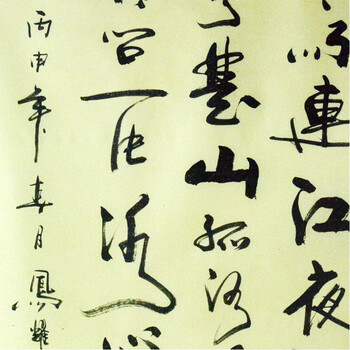 雨連江夜
楚山孤洛
問一片冰心
丙申年春月鳳耀